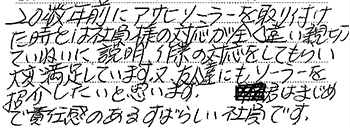 20数年前にアサヒソーラーを取り付け
た時とは社員様の対応が全く違い親切
ていねいに説明、作業の対応をしてもらい
大変満足しています。又、友達にもソーラーを
紹介したいと思います。君はまじめ
で責任感のあるすばらしい社員です。